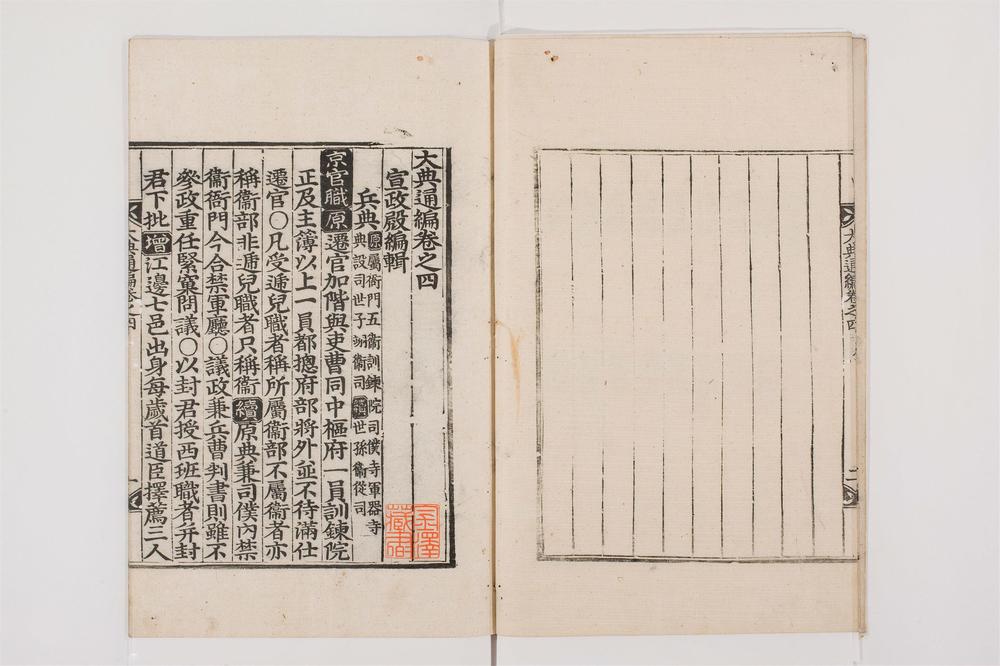 大典通編卷之四
二
大典通編卷之四
宣政殿編輯
兵典原屬衙門五衛訓鍊院司僕寺軍器寺
典設司世子翊衛司續世孫衛從司
京官職原遷官加階與吏曹同中樞府一員訓鍊院
正及主簿以上一員都摠府部將外並不待滿仕
遷官○凡受遞兒職者稱所屬衛部不屬衛者亦
稱衛部非遞兒職者只稱衛續原典兼司僕內禁
衛衙門今合禁軍廳○議政兼兵曹判書則雖不
參政重任緊窠問議○以封君授西班職者幷封
君下批增江邊七邑出身每歲首道臣擇薦三人
大典通編卷之四
一
金澤
藏書